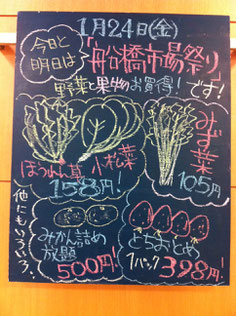 1月24日(金)
今日と
明日は
「船橋市場祭り」
野菜と果物お買得！です！
ほうれん草 小松菜
158円！
みず菜
105円
他にもいろいろ！
みかん詰め
放題
500円！
とちおとめ
1パック 398円！